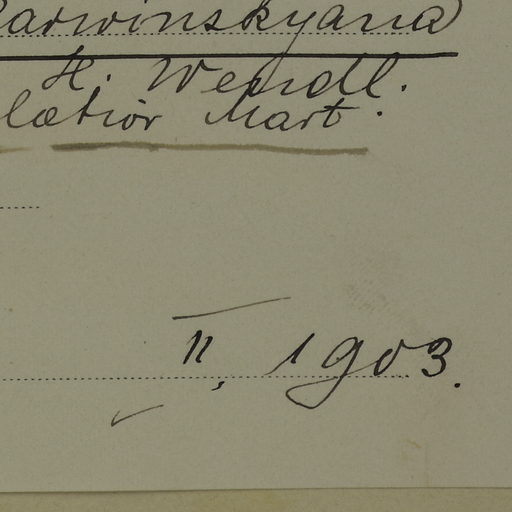 arwinskyana
H. Wendl.
lætior Mart.
II, 1903.